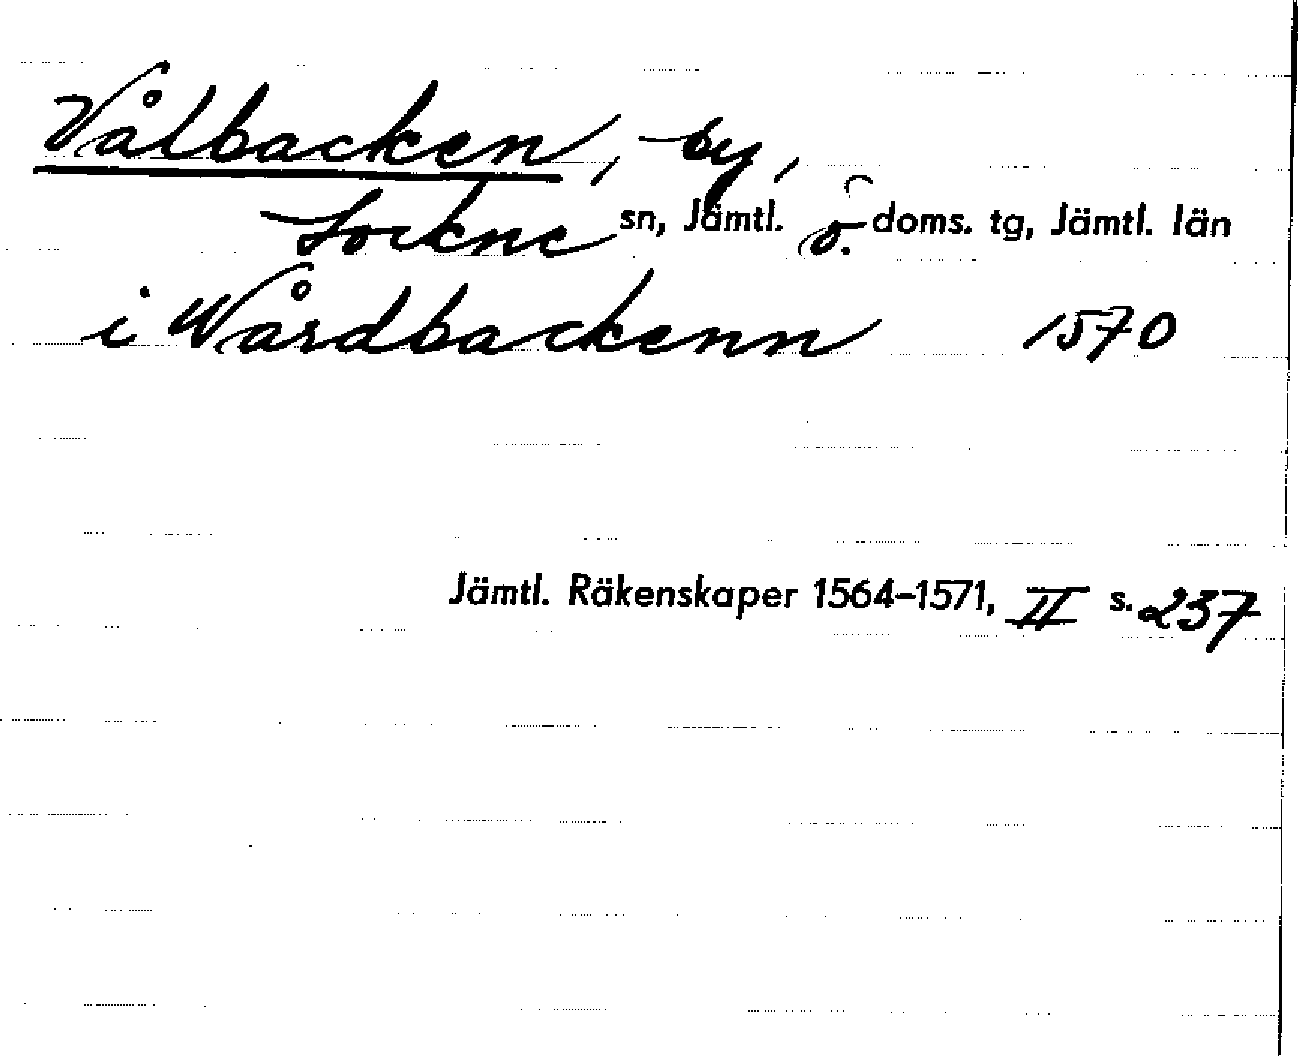 Vålbacken, by,
Lockne sn, Jämtl. ö. doms. tg, Jämtl. län
i Wårdbackenn 1570
Jämtl. Räkenskaper 1564-1571, II s. 237